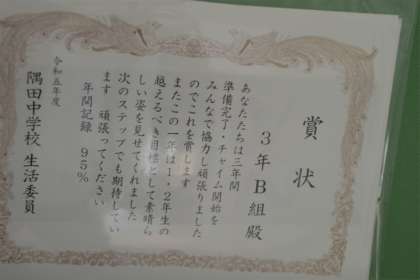 賞状
3年B組殿
あなたたちは三年間
準備完了・チャイム開始を
みんなで協力し頑張りました
のでこれを賞します
またこの一年は1・2年生の
越えるべき目標として素晴ら
しい姿を見せてくれました
次のステップでも期待してい
ます 頑張ってください
年間記録 95%
令和五年度
隅田中学校 生活委員